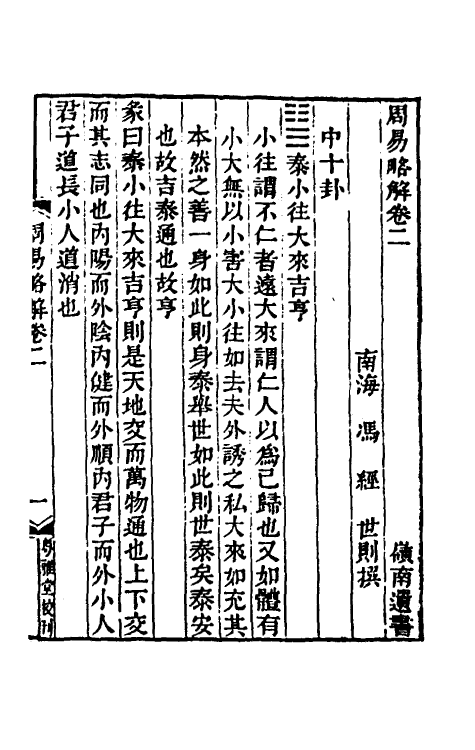 周易略解卷二
嶺南遺書
南海 馮經 世則撰
中十卦
䷊泰小往大來吉亨
小往謂不仁者遠大來謂仁人以爲己歸也又如體有
小大無以小害大小往如去夫外誘之私大來如充其
本然之善一身如此則身泰舉世如此則世泰矣泰安
也故吉泰通也故亨
彖曰泰小往大來吉亨則是天地交而萬物通也上下交
而其志同也內陽而外陰內健而外順內君子而外小人
君子道長小人道消也
周易略解卷二
一
粵雅堂校刊